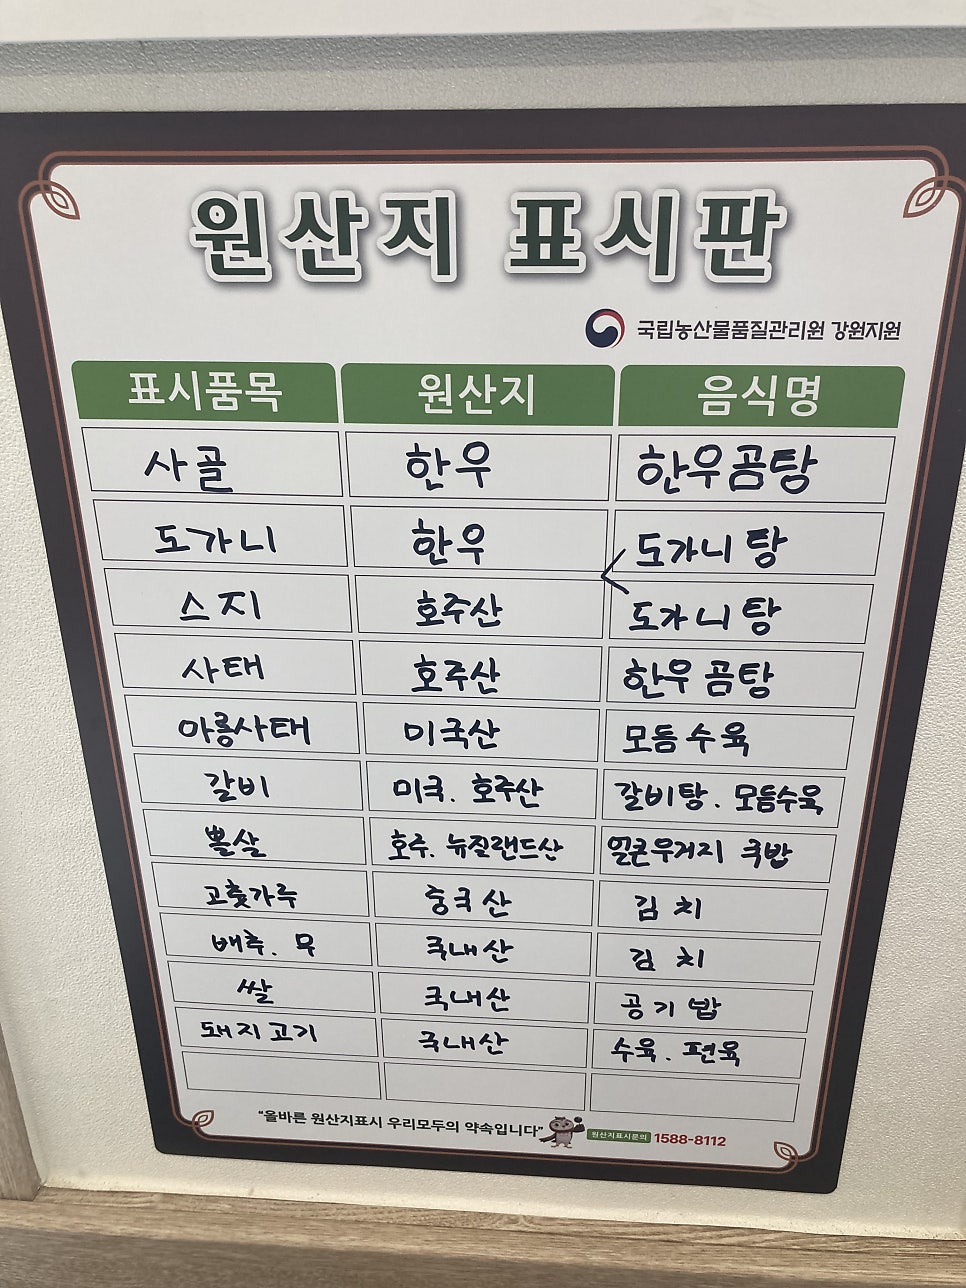 원산지 표시판
국립농산물품질관리원 강원지원
표시품목 원산지 음식명
사골 한우 한우곰탕
도가니 한우 도가니탕
스지 호주산 도가니탕
사태 호주산 한우곰탕
아롱사태 미국산 모듬수육
갈비 미국. 호주산 갈비탕. 모듬수육
뽈살 호주. 뉴질랜드산 얼큰우거지 국밥
고춧가루 중국산 김치
배추. 무 국내산 김치
쌀 국내산 공기밥
돼지고기 국내산 수육. 편육
"올바른 원산지표시 우리모두의 약속입니다" 원산지표시문의 1588-8112